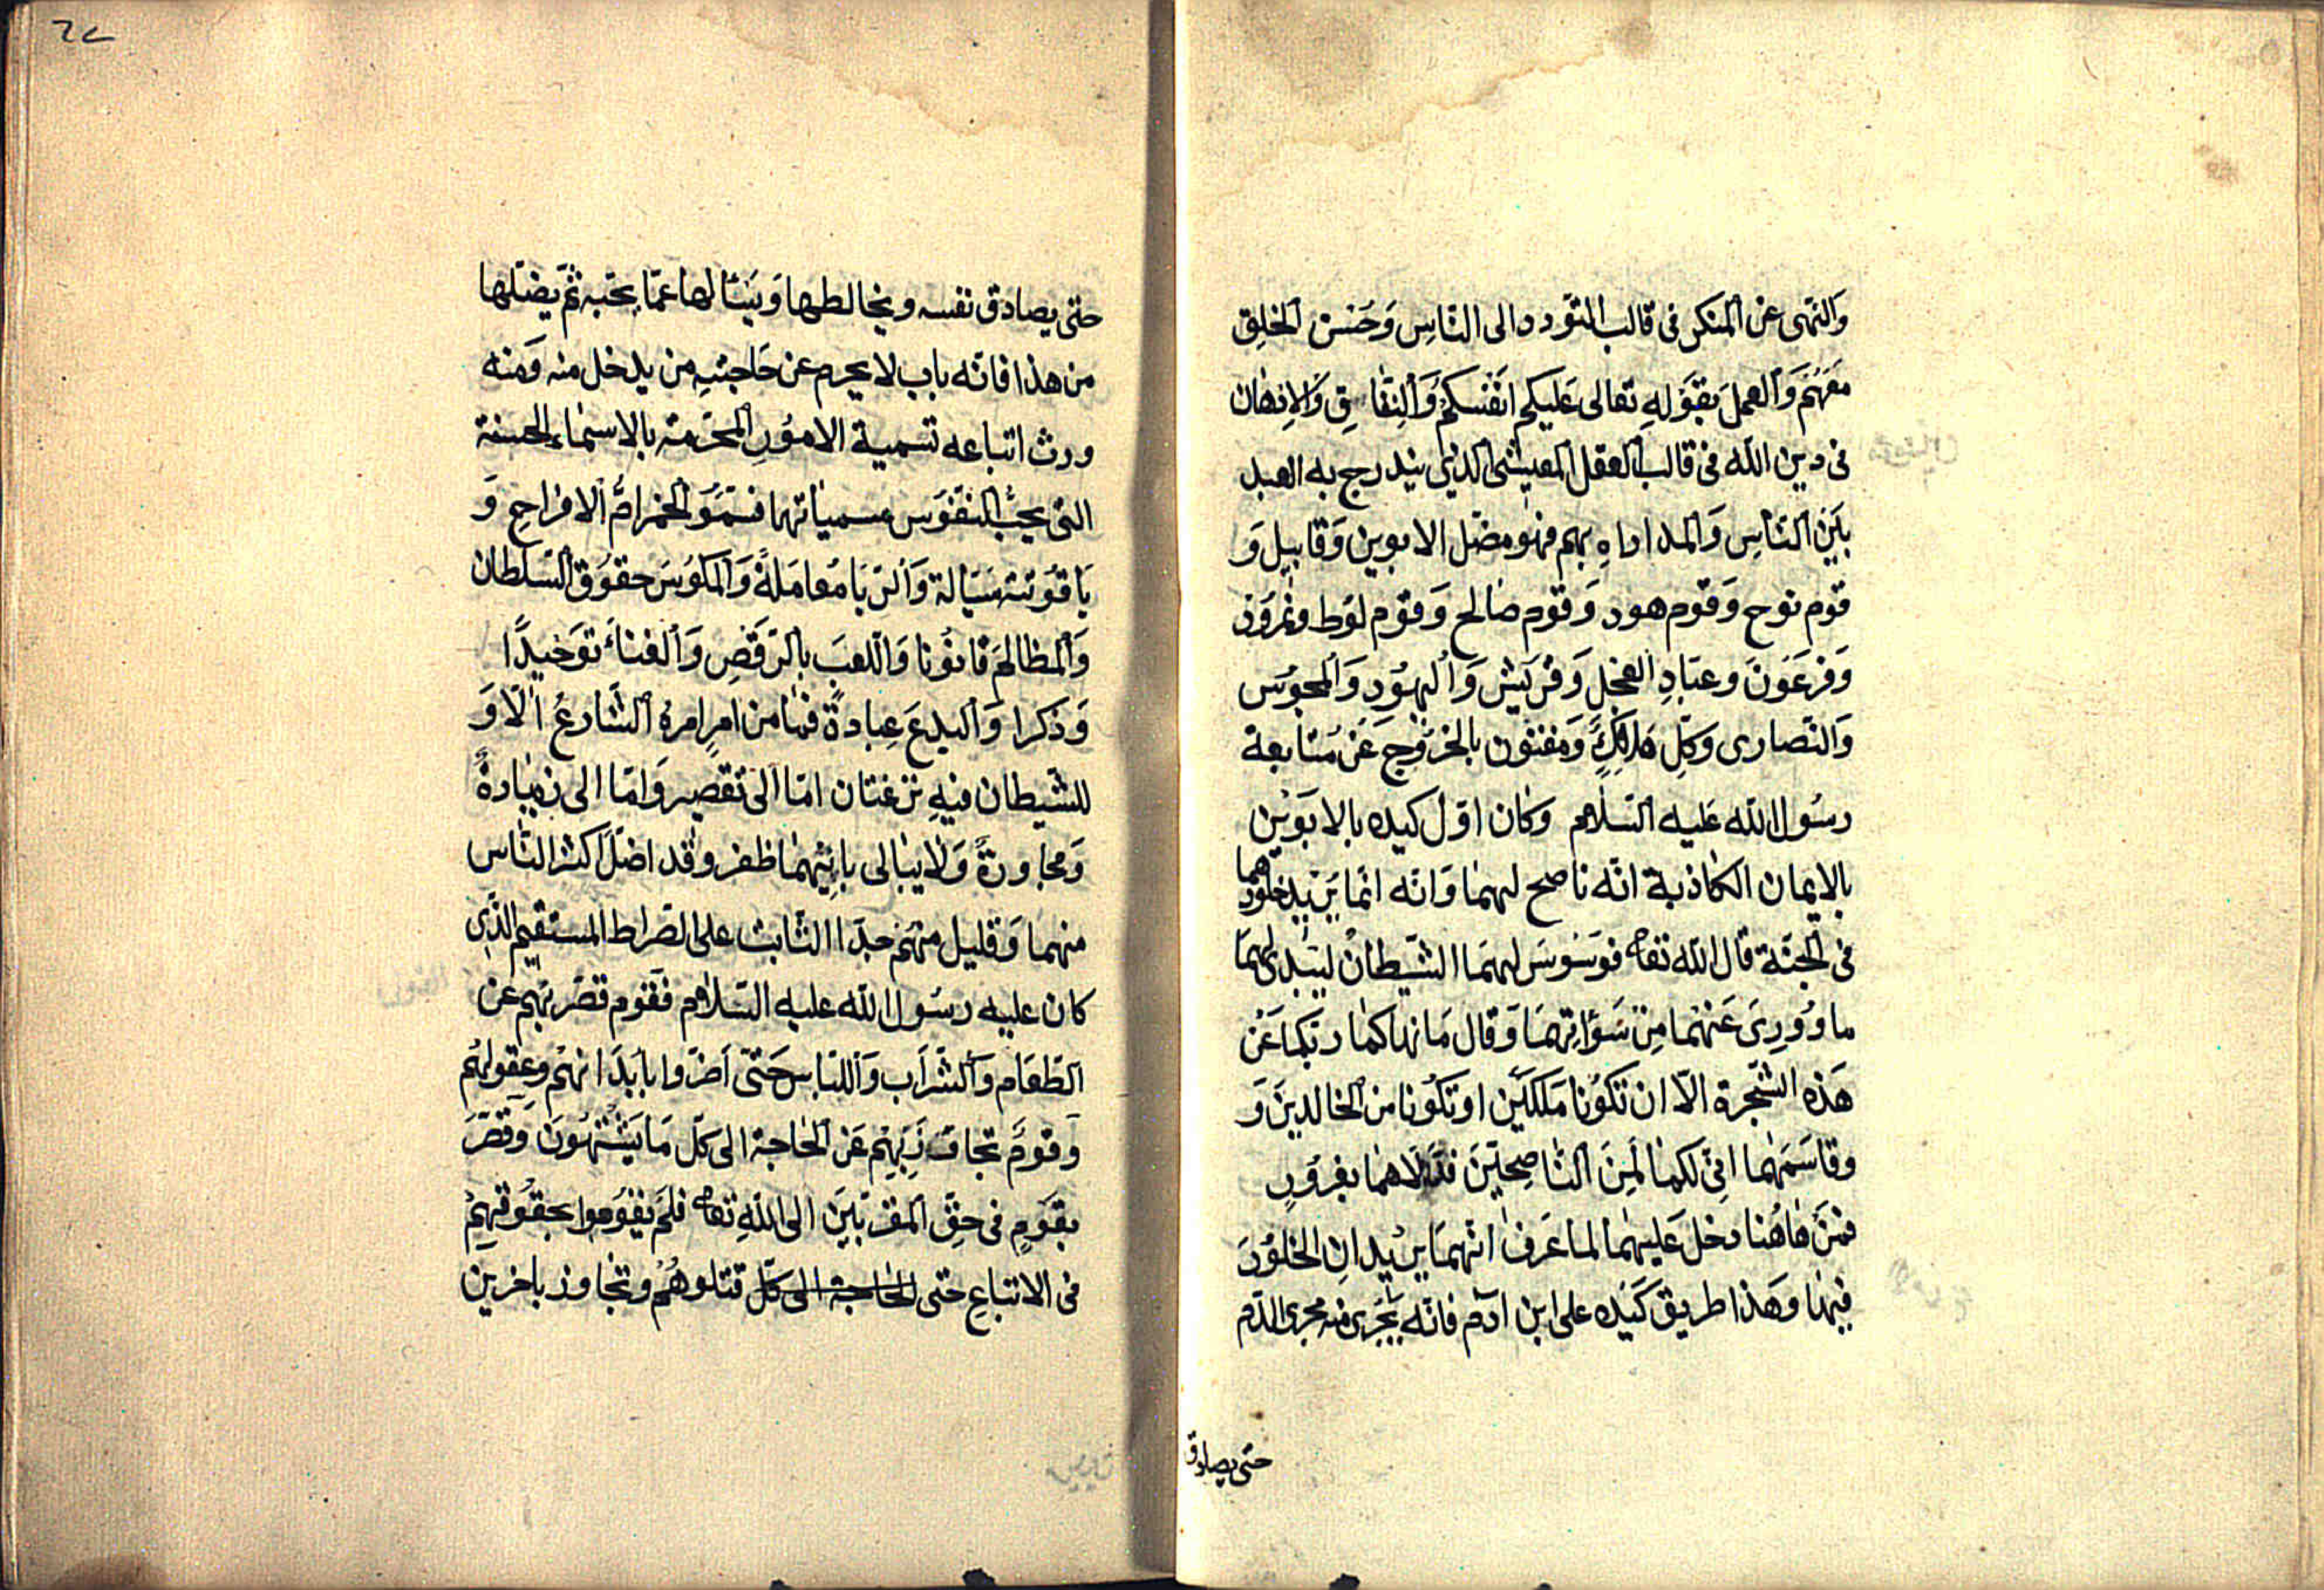 والنهى عن المنكر فى قالب التودد الى الناس وحسن الخلق
معهم والعمل بقوله تعالى عليكم انفسكم والنفاق والادهان
فى دين الله فى قالب العقل المعيشى الذى يندرج به العبد
بين الناس والمداراه بهم فهو مضل الابوين وقابيل و
قوم نوح وقوم هود وقوم صالح وقوم لوط ونمروذ
وفرعون وعباد العجل وقريش واليهود والمجوس
والنصارى وكل هالك ومفتون بالخروج عن متابعة
رسول الله عليه السلام وكان اول كيده بالابوين
بالايمان الكاذبة انه ناصح لهما وانه انما يريد خلودهما
فى الجنة قال الله تعا فوسوس لهما الشيطان ليبدى لهما
ما وورى عنهما من سوآتهما وقال ما نهاكما ربكما عن
هذه الشجرة الا ان تكونا ملكين او تكونا من الخالدين و
وقاسمهما انى لكما لمن الناصحين فدلاهما بغرور
فمن هاهنا دخل عليهما لما عرف انهما يريدان الخلود
فيها وهذا طريق كيده على ابن ادم فانه يجرى منه مجرى الدم
حتى يصادق
٦٢
حتى يصادق نفسه ويخالطها ويسألها عما يحبه ثم يضلها
من هذا فانه باب لا يحرم عن حاجته من يدخل منه ومنه
ورث اتباعه تسمية الامور المحرمة بالاسماء الحسنة
التى يحب النفوس مسمياتها فسموا الخمر ام الافراح و
ياقوتته سيالة والربا معاملة والمكوس حقوق السلطان
والمظالم قانونا واللعب بالرقص والغناء توحيدا
وذكرا والبدع عبادة فما من امر امره الشارع الا و
للشيطان فيه نزغتان اما الى تقصير واما الى زيادة
ومجاوزة ولا يبالى بايهما ظفر وقد اضل اكثر الناس
منهما وقليل منهم جدا الثابت على الصراط المستقيم الذى
كان عليه رسول الله عليه السلام فقوم قصر بهم عن
الطعام والشراب واللباس حتى اضروا بابدانهم وعقولهم
وقوم تجاوز بهم عن الحاجة الى كل ما يشتهون وقصر
بقوم فى حق المقربين الى الله تعا فلم يقوموا بحقوقهم
فى الاتباع حتى الحاجة الى كل قتلوهم وتجاوز باخرين